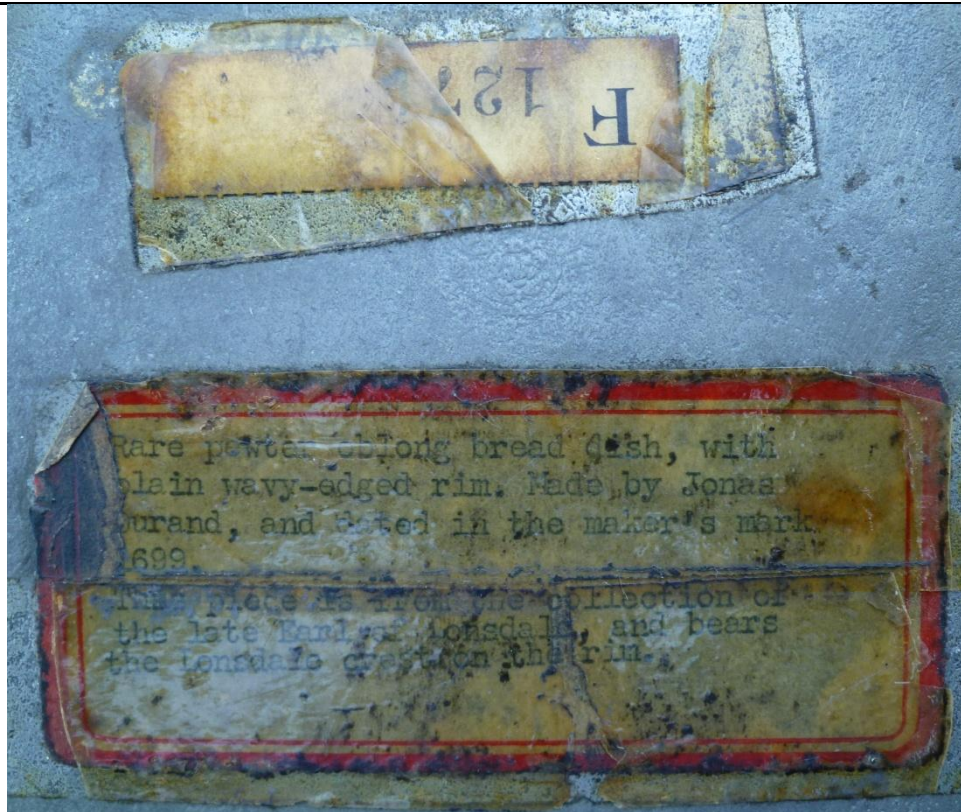 F
127
Rare pewter oblong bread dish, with
plain wavy-edged rim. Made by Jonas
Durand, and dated in the maker's mark
1699.
This piece is from the collection of
the late Earl of Lonsdale, and bears
the Lonsdale crest on the rim.